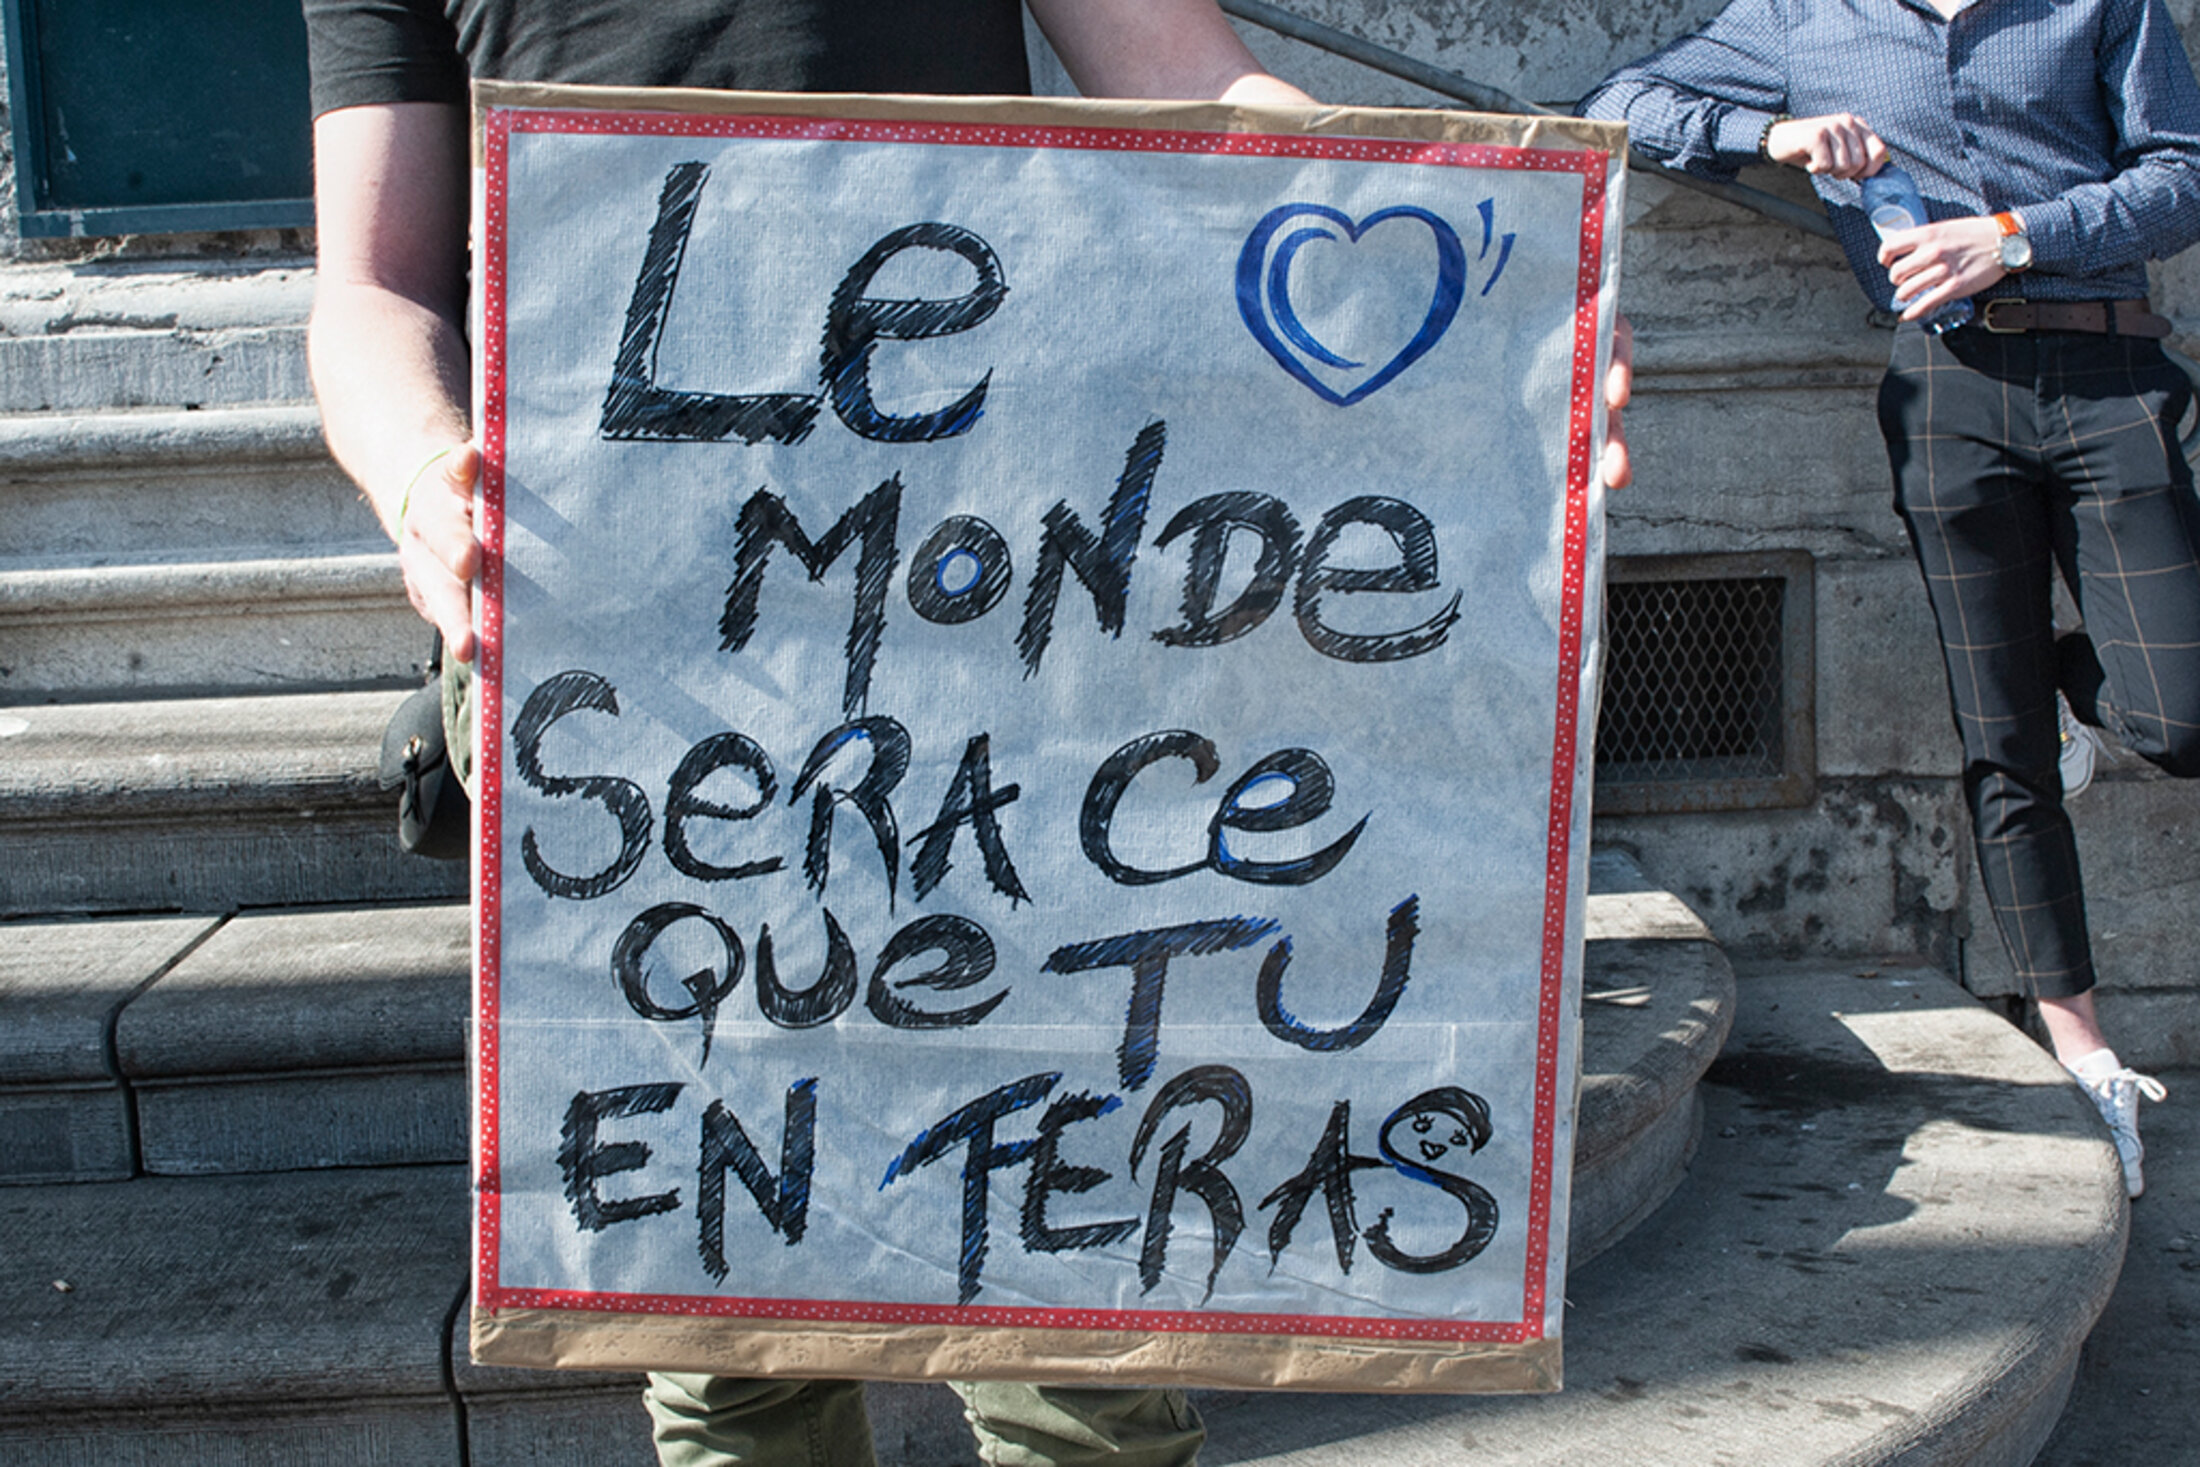 Le
MONDe
SeRA Ce
que TU
EN FERAS